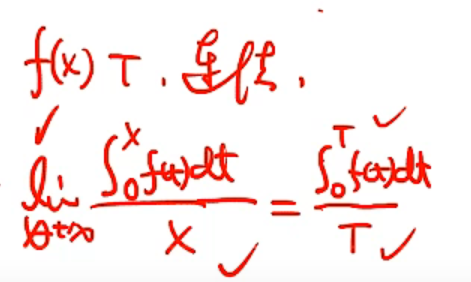 f(x) T. 连续.
lim_{x→+∞} \frac{∫_0^x f(t)dt}{x} = \frac{∫_0^T f(t)dt}{T}